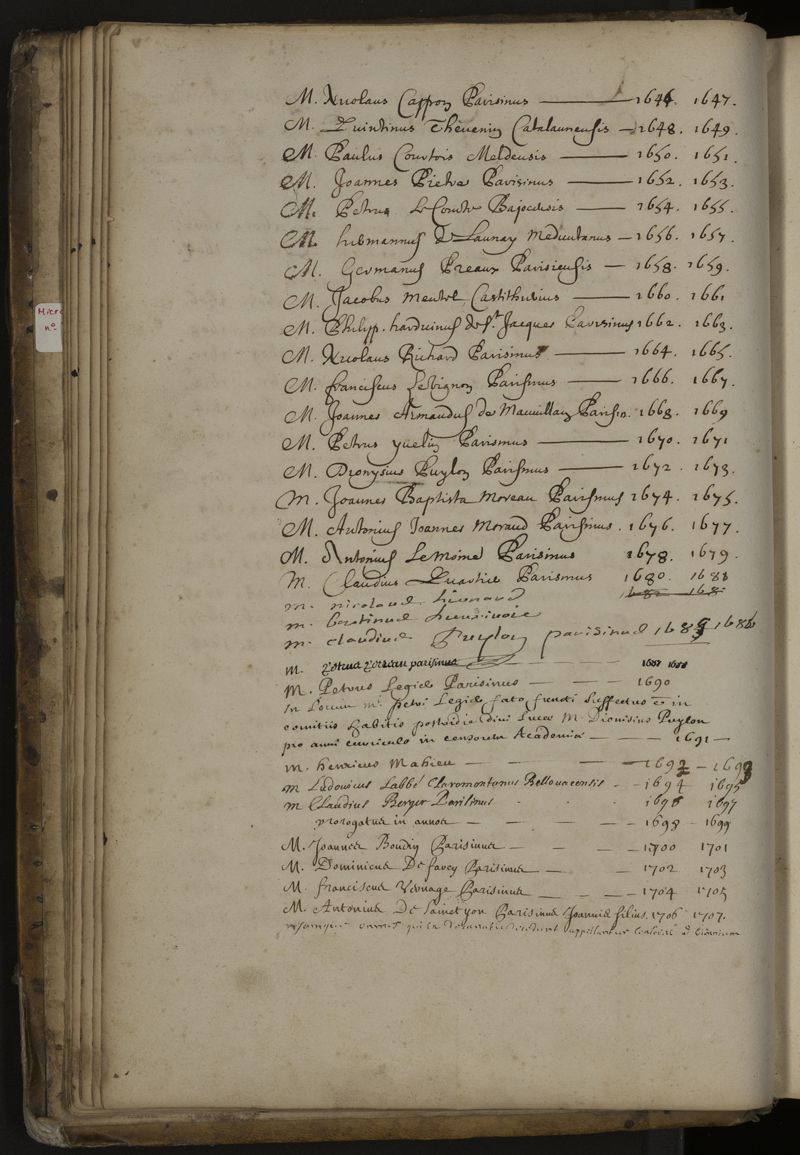 M. Nicolaus Cappon Parisinus — 1646. 1647.
M. Quintinus Thevenin Catalaunensis — 1648. 1649.
M. Paulus Courtois Meldensis — 1650. 1651.
M. Joannes Pietre Parisinus — 1652. 1653.
M. Petrus LeConte Bajocensis — 1654. 1655.
M. hermannus De Launay Meduntanus — 1656. 1657.
M. Germanus Preaux Parisiensis — 1658. 1659.
M. Jacobus Mentel — 1660. 1661
M. Philipp. harduinus de St. Jacques Parisinus 1662. 1663.
M. Nicolaus Richard Parisinus — 1664. 1665.
M. franciscus Parisinus — 1666. 1667.
M. Joannes Armandus de Mauvillain Parisin. 1668. 1669
M. Petrus yvelin Parisinus — 1670. 1671
M. Dionysius Puylon Parisinus — 1672. 1673.
M. Joannes Baptista Moreau Parisinus 1674. 1675.
M. Antonius Joannes Morand Parisinus. 1676. 1677.
M. Antonius Le Moine Parisinus 1678. 1679.
M. Claudius Quartier Parisinus 1680. 1681
m. nicolaus lienard
m. bertinus
m. claudius Puylon parisinus 1685 1686
M. parisinus — 1687 1688
M. Petrus Legier Parisinus — 1690
In Locum mri petri Legier fato functi suffectus e in
comitiis habitis postridie divi Lucæ M. Dionisius Puylon
pro anni curriculo in censorem Academiæ — 1691 —
M. henricus Mahieu — 1692 — 1693
M Ludovicus Labbé Claromontanus Bellovacensis - 1694 1695
m Claudius Berger Parisinus . . . 1696 1697
prorogatus in annos — 1698 - 1699
M. Joannes Boudin Parisinus — 1700 1701
M. Dominicus De farcy Parisinus — 1702 1703
M. franciscus Vernage Parisinus — 1704 1705
M. Antonius De Saintyon Parisinus Joannis filius. 1706 1707.
omnes qui appellantur
Micro
no